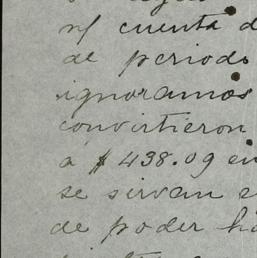 n/ cuenta d
de periodo
ignoramos
convirtieron
a $ 438.09 en
se sirvan e
de poder ha